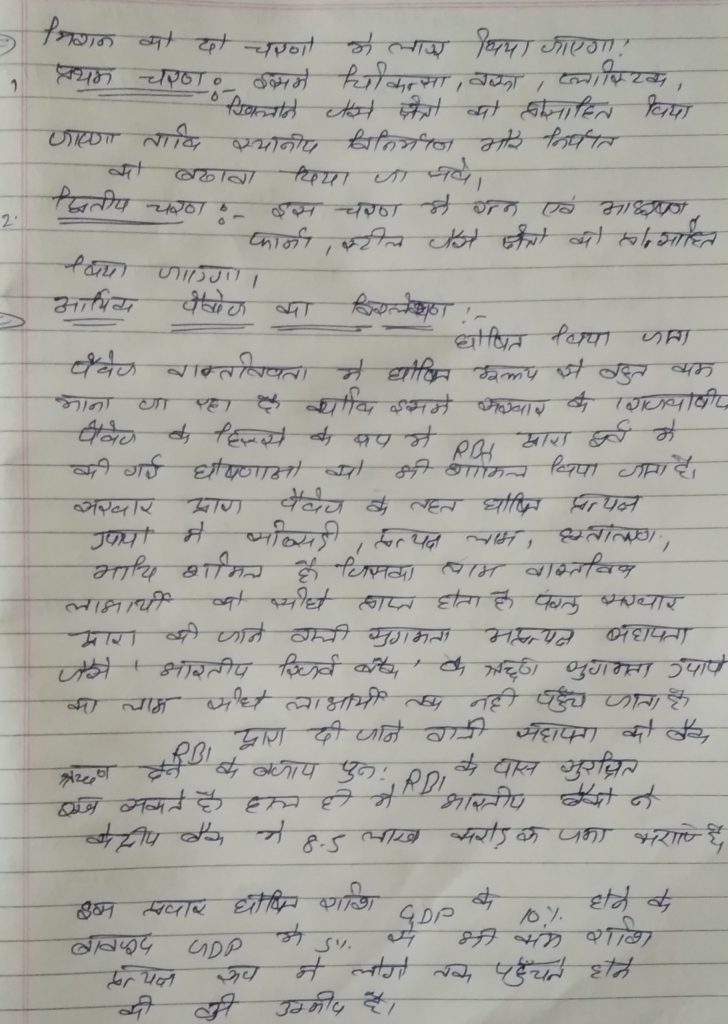 मिशन को दो चरणों में लागू किया जाएगा:
1. प्रथम चरण :- इसमें चिकित्सा, वस्त्र, प्लास्टिक,
खिलौने जैसे क्षेत्रों को प्रोत्साहित किया
जाएगा ताकि स्थानीय विनिर्माण और निर्यात
को बढावा दिया जा सके।
2. द्वितीय चरण :- इस चरण में रत्न एवं आभूषण,
फार्मा, स्टील जैसे क्षेत्रों को प्रोत्साहित
किया जाएगा।
आर्थिक पैकेज का विश्लेषण :-
घोषित किया गया
पैकेज वास्तविकता में घोषित मूल्य से बहुत कम
माना जा रहा है क्योंकि इसमें सरकार के राजकोषीय
पैकेज के हिस्से के रूप में RBI द्वारा पूर्व में
की गई घोषणाओं को भी शामिल किया गया है।
सरकार द्वारा पैकेज के तहत घोषित प्रत्यक्ष
उपायों में सब्सिडी, प्रत्यक्ष लाभ, हस्तांतरण,
आदि शामिल है जिसका लाभ वास्तविक
लाभार्थी को सीधे प्राप्त होता है परंतु सरकार
द्वारा की जाने वाली सुगमता अप्रत्यक्ष सहायता
जैसे 'भारतीय रिजर्व बैंक' के ऋण सुगमता उपायों
का लाभ सीधे लाभार्थी तक नहीं पहुँच जाता है
RBI द्वारा दी जाने वाली सहायता को बैंक
ऋण देने के बजाय पुन: RBI के पास सुरक्षित
रख सकते है हाल ही में भारतीय बैंकों ने
केंद्रीय बैंक में 8.5 लाख करोड़ रू जमा कराये है
इस प्रकार घोषित राशि GDP के 10% होने के
बावजूद GDP में 5% से भी कम राशि
प्रत्यक्ष रूप में लोगों तक पहुँचने होने
की की उम्मीद है।